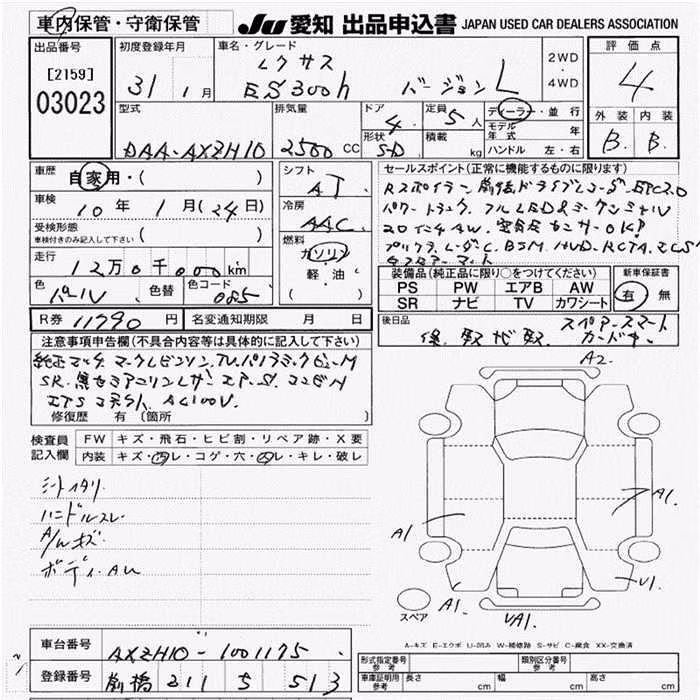 車内保管・守衛保管
JU 愛知 出品申込書 JAPAN USED CAR DEALERS ASSOCIATION
出品番号
[2159]
03023
初度登録年月
31 1月
車名・グレード
レクサス
ES300h バージョンL
2WD
・
4WD
評価点
4
外装 内装
B B
型式
DAA-AXZH10
排気量
2500 CC
ドア
4
形状
S-D
定員
5人
積載
kg
ディーラー・並行
モデル年式 年
ハンドル 左・右
車歴
自家用・( )
車検
10年 1月(24日)
受検形態
車検付きのみ記入して下さい ( )
走行
12万0千000km
色
パール
色替
色コード
085
シフト
AT
冷房
AAC
燃料
ガソリン
軽・油
( )
セールスポイント(正常に機能するものに限ります)
Rスポイラー 前後ドライブレコーダ ETC2.0
パワートランク フルLED
20インチAW
プリクラ レーダーC BSM HUD RCTA
装備品(純正品に限り○をつけてください)
PS PW エアB AW
SR ナビ TV カワシート
新車保証書
有 無
R券 11790円 名変通知期限 月 日
後日品
保 取 スペアースマート
カードキー
注意事項申告欄(不具合内容等は具体的に記入して下さい)
純正マルチ マークレビンソン TV パノラミックビューM
SR 黒セミアニリンレザー エアーS コンビH
AC100V
修復歴 有 〔箇所 〕
検査員
記入欄
FW キズ・飛石・ヒビ割・リペア跡・X要
内装 キズ・汚レ・コゲ・穴・スレ・キレ・破レ
シートイタリ
ハンドルスレ
A/Wキズ
ボディAU
A2
A1
A1
U1
A1
UA1
スペア
A-キズ E-エクボ U-凹み W-補修跡 S-サビ C-腐食 XX-交換済
車台番号
AXZH10-1001175
登録番号
前橋 211 5 513
形式指定番号
参考
類別区分番号
参考
車庫証明用
参考
長さ cm 幅 cm 高さ cm